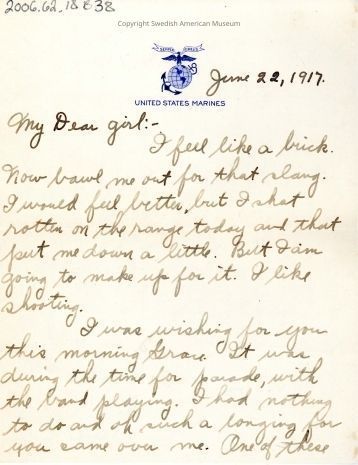 2006.62.18838
Copyright Swedish American Museum
SEMPER FIDELIS
June 22, 1917.
UNITED STATES MARINES
My Dear girl:-
I feel like a brick.
Now bawl me out for that slang.
I would feel better, but I shot
rotten on the range today and that
put me down a little. But I am
going to make up for it. I like
shooting.
I was wishing for you
this morning Grace. It was
during the time for parade, with
the band playing. I had nothing
to do and oh such a longing for
you came over me. One of these